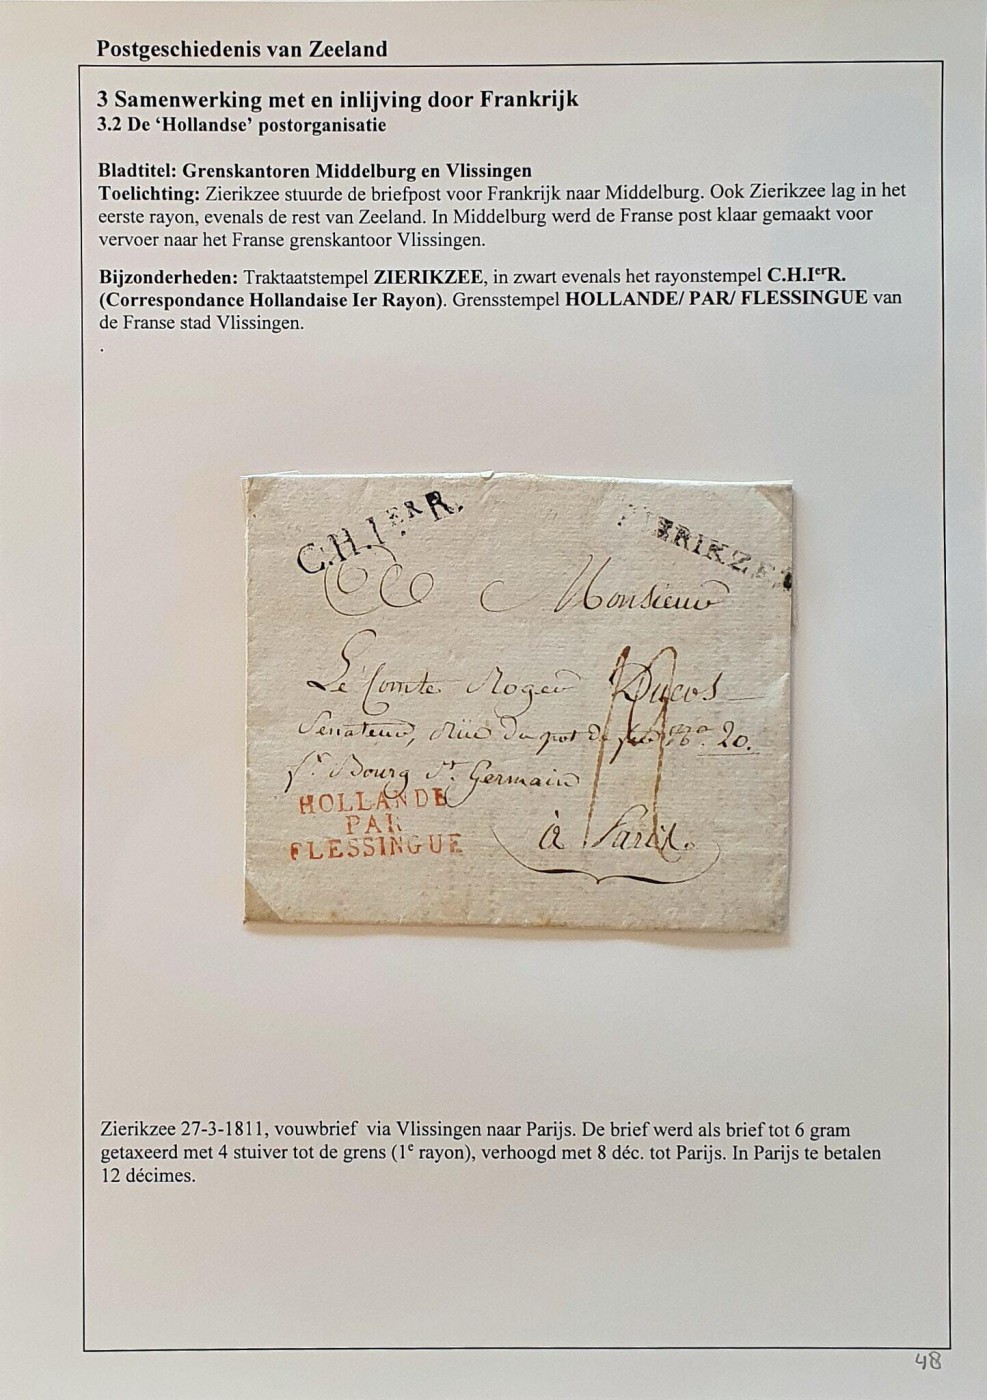 Postgeschiedenis van Zeeland
3 Samenwerking met en inlijving door Frankrijk
3.2 De ‘Hollandse’ postorganisatie
Bladtitel: Grenskantoren Middelburg en Vlissingen
Toelichting: Zierikzee stuurde de briefpost voor Frankrijk naar Middelburg. Ook Zierikzee lag in het
eerste rayon, evenals de rest van Zeeland. In Middelburg werd de Franse post klaar gemaakt voor
vervoer naar het Franse grenskantoor Vlissingen.
Bijzonderheden: Traktaatstempel ZIERIKZEE, in zwart evenals het rayonstempel C.H.IerR.
(Correspondance Hollandaise Ier Rayon). Grensstempel HOLLANDE/ PAR/ FLESSINGUE van
de Franse stad Vlissingen.
.
C.H.IerR.
ZIERIKZEE
Monsieur
Le Comte Roger Ducos
Senateur, Rüe du pot de fer No. 20.
f. Bourg St. Germain
HOLLANDE
PAR
FLESSINGUE
à Paris.
Zierikzee 27-3-1811, vouwbrief via Vlissingen naar Parijs. De brief werd als brief tot 6 gram
getaxeerd met 4 stuiver tot de grens (1e rayon), verhoogd met 8 déc. tot Parijs. In Parijs te betalen
12 décimes.
48